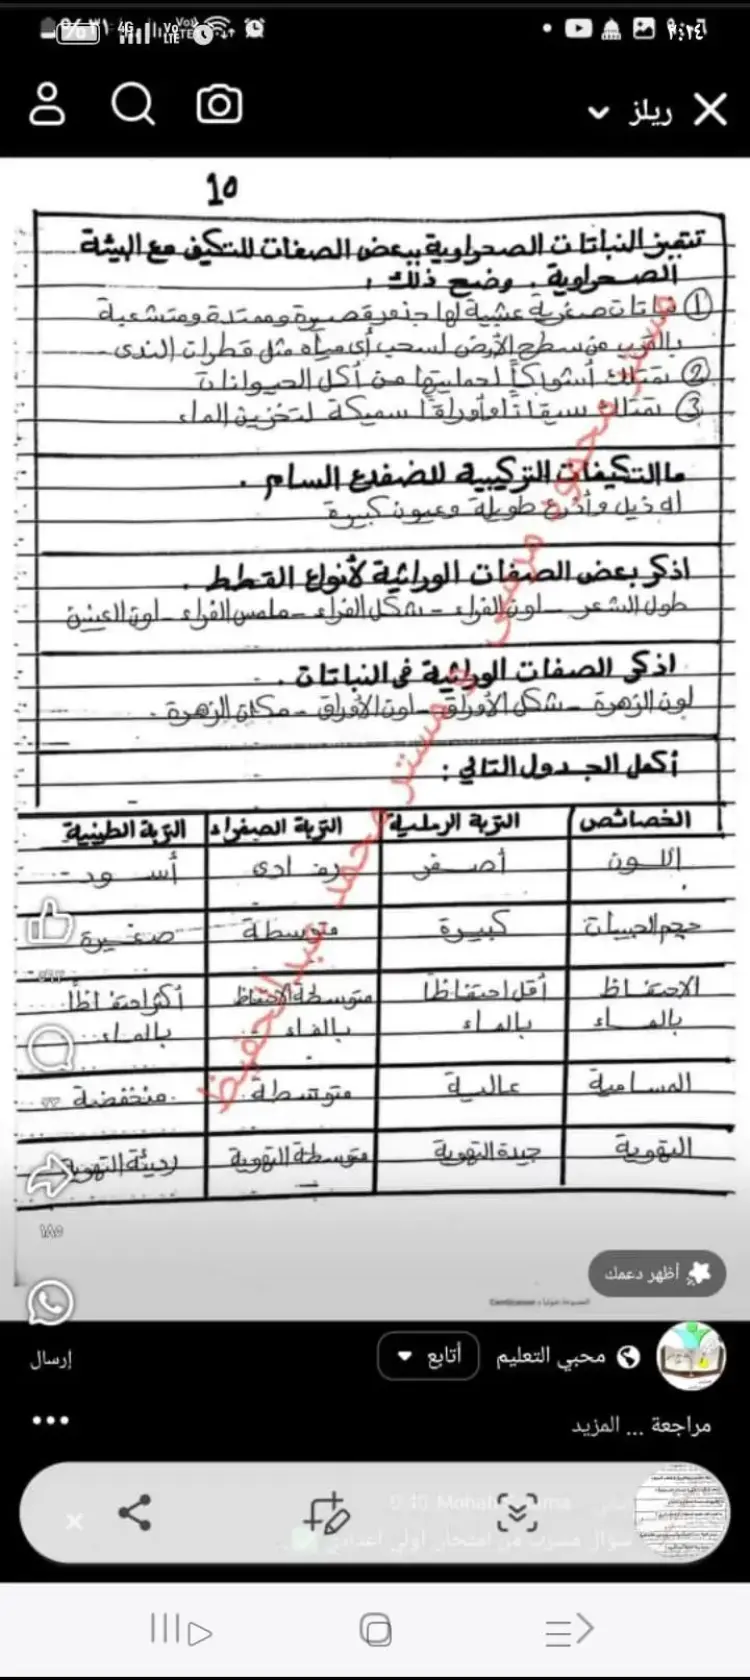 ٩:٢٤
ريلز
10
تتميز النباتات الصحراوية ببعض الصفات للتكيف مع البيئة
الصحراوية . وضح ذلك :
① نباتات صغيرة عشبية لها جذور قصيرة وممتدة ومتشعبة
بالقرب من سطح الأرض لسحب أي مياه مثل قطرات الندى
② تمتلك أشواكاً لحمايتها من أكل الحيوانات
③ تمتلك سيقاناً وأوراقاً سميكة لتخزين الماء
ما التكيفات التركيبية للضفدع السام .
له ذيل وأذرع طويلة وعيون كبيرة
اذكر بعض الصفات الوراثية لأنواع القطط .
طول الشعر - لون الفراء - شكل الفراء - ملمس الفراء - لون العينين
اذكر الصفات الوراثية في النباتات .
لون الزهرة - شكل الأوراق - لون الأوراق - مكان الزهرة .
أكمل الجدول التالي :
الخصائص التربة الرملية التربة الصفراء التربة الطينية
اللون أصفر رمادى أسود
حجم الحبيبات كبيرة متوسطة صغيرة
الاحتفاظ أقل احتفاظاً متوسطة الاحتفاظ أكثر احتفاظاً
بالماء بالماء بالماء بالماء
المسامية عالية متوسطة منخفضة
التهوية جيدة التهوية متوسطة التهوية رديئة التهوية
مستر محمود مرضى و مستر محمد عبدالحفيظ
١٨٥
أظهر دعمك
محبي التعليم
أتابع
إرسال
مراجعة ... المزيد